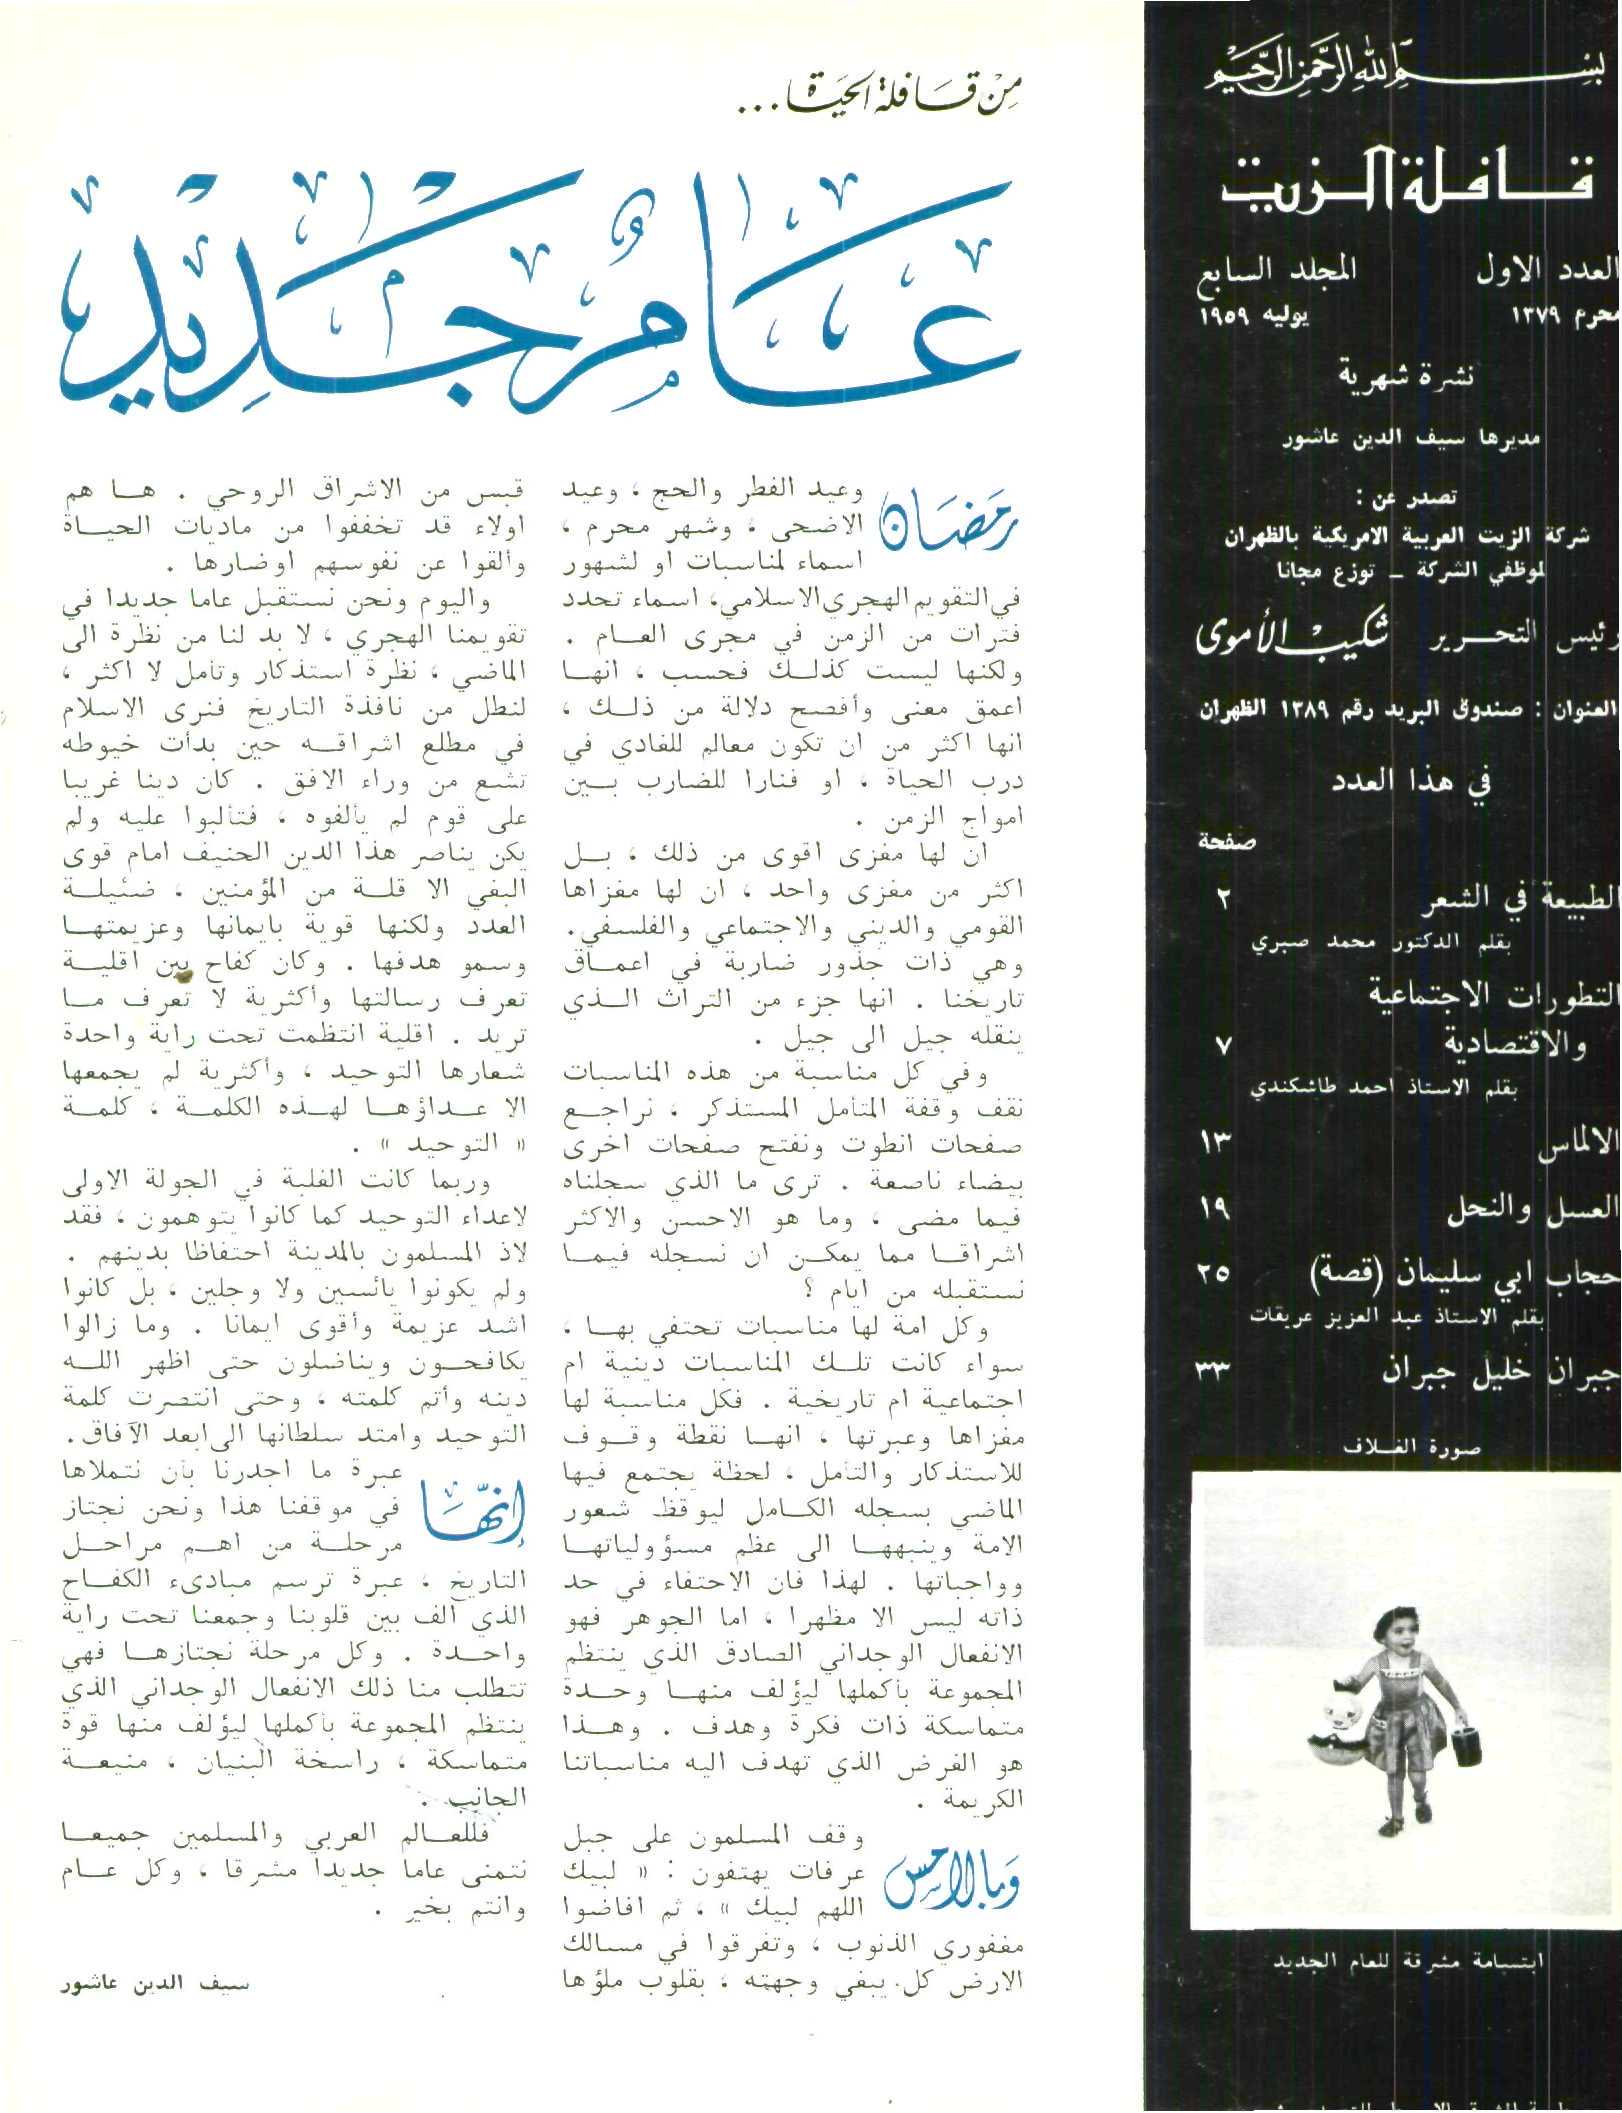 بسم الله الرحمن الرحيم
قافلة الزيت
العدد الاول المجلد السابع
محرم ١٣٧٩ يوليه ١٩٥٩
نشرة شهرية
مديرها سيف الدين عاشور
تصدر عن :
شركة الزيت العربية الامريكية بالظهران
لموظفي الشركة – توزع مجانا
رئيس التحرير شكيب الأموى
العنوان : صندوق البريد رقم ١٣٨٩ الظهران
في هذا العدد
صفحة
الطبيعة في الشعر ٢
بقلم الدكتور محمد صبري
التطورات الاجتماعية
والاقتصادية ٧
بقلم الاستاذ احمد طاشكندي
الالماس ١٣
العسل والنحل ١٩
حجاب ابي سليمان (قصة) ٢٥
بقلم الاستاذ عبد العزيز عريقات
جبران خليل جبران ٣٣
صورة الغلاف
ابتسامة مشرقة للعام الجديد
من قافلة الحياة...
عام جديد
رمضان وعيد الفطر والحج ، وعيد
الاضحى ، وشهر محرم ،
اسماء لمناسبات او لشهور
في التقويم الهجري الاسلامي، اسماء تحدد
فترات من الزمن في مجرى العام .
ولكنها ليست كذلك فحسب ، انها
اعمق معنى وأفصح دلالة من ذلك ،
انها اكثر من ان تكون معالم للغادي في
درب الحياة ، او فنارا للضارب بين
امواج الزمن .
ان لها مغزى اقوى من ذلك ، بل
اكثر من مغزى واحد ، ان لها مغزاها
القومي والديني والاجتماعي والفلسفي.
وهي ذات جذور ضاربة في اعماق
تاريخنا . انها جزء من التراث الذي
ينقله جيل الى جيل .
وفي كل مناسبة من هذه المناسبات
نقف وقفة المتأمل المستذكر ، نراجع
صفحات انطوت ونفتح صفحات اخرى
بيضاء ناصعة . ترى ما الذي سجلناه
فيما مضى ، وما هو الاحسن والاكثر
اشراقا مما يمكن ان نسجله فيما
نستقبله من ايام ؟
وكل امة لها مناسبات تحتفي بها ،
سواء كانت تلك المناسبات دينية ام
اجتماعية ام تاريخية . فكل مناسبة لها
مغزاها وعبرتها ، انها نقطة وقوف
للاستذكار والتأمل ، لحظة يجتمع فيها
الماضي بسجله الكامل ليوقظ شعور
الامة وينبهها الى عظم مسؤولياتها
وواجباتها . لهذا فان الاحتفاء في حد
ذاته ليس الا مظهرا ، اما الجوهر فهو
الانفعال الوجداني الصادق الذي ينتظم
المجموعة بأكملها ليؤلف منها وحدة
متماسكة ذات فكرة وهدف . وهذا
هو الغرض الذي تهدف اليه مناسباتنا
الكريمة .
وبالامس وقف المسلمون على جبل
عرفات يهتفون : « لبيك
اللهم لبيك » ، ثم افاضوا
مغفوري الذنوب ، وتفرقوا في مسالك
الارض كل يبغي وجهته ، بقلوب ملؤها
قبس من الاشراق الروحي . ها هم
اولاء قد تخففوا من ماديات الحياة
وألقوا عن نفوسهم اوضارها .
واليوم ونحن نستقبل عاما جديدا في
تقويمنا الهجري ، لا بد لنا من نظرة الى
الماضي ، نظرة استذكار وتأمل لا اكثر ،
لنطل من نافذة التاريخ فنرى الاسلام
في مطلع اشراقه حين بدأت خيوطه
تشع من وراء الافق . كان دينا غريبا
على قوم لم يألفوه ، فتألبوا عليه ولم
يكن يناصر هذا الدين الحنيف امام قوى
البغي الا قلة من المؤمنين ، ضئيلة
العدد ولكنها قوية بايمانها وعزيمتها
وسمو هدفها . وكان كفاح بين اقلية
تعرف رسالتها وأكثرية لا تعرف ما
تريد . اقلية انتظمت تحت راية واحدة
شعارها التوحيد ، وأكثرية لم يجمعها
الا عداؤها لهذه الكلمة ، كلمة
« التوحيد » .
وربما كانت الغلبة في الجولة الاولى
لاعداء التوحيد كما كانوا يتوهمون ، فقد
لاذ المسلمون بالمدينة احتفاظا بدينهم .
ولم يكونوا يائسين ولا وجلين ، بل كانوا
اشد عزيمة وأقوى ايمانا . وما زالوا
يكافحون ويناضلون حتى اظهر الله
دينه وأتم كلمته ، وحتى انتصرت كلمة
التوحيد وامتد سلطانها الى ابعد الآفاق.
إنها عبرة ما اجدرنا بأن نتملاها
في موقفنا هذا ونحن نجتاز
مرحلة من اهم مراحل
التاريخ ، عبرة ترسم مبادىء الكفاح
الذي الف بين قلوبنا وجمعنا تحت راية
واحدة . وكل مرحلة نجتازها فهي
تتطلب منا ذلك الانفعال الوجداني الذي
ينتظم المجموعة بأكملها ليؤلف منها قوة
متماسكة ، راسخة البنيان ، منيعة
الجانب .
فللعالم العربي والمسلمين جميعا
نتمنى عاما جديدا مشرقا ، وكل عام
وانتم بخير .
سيف الدين عاشور